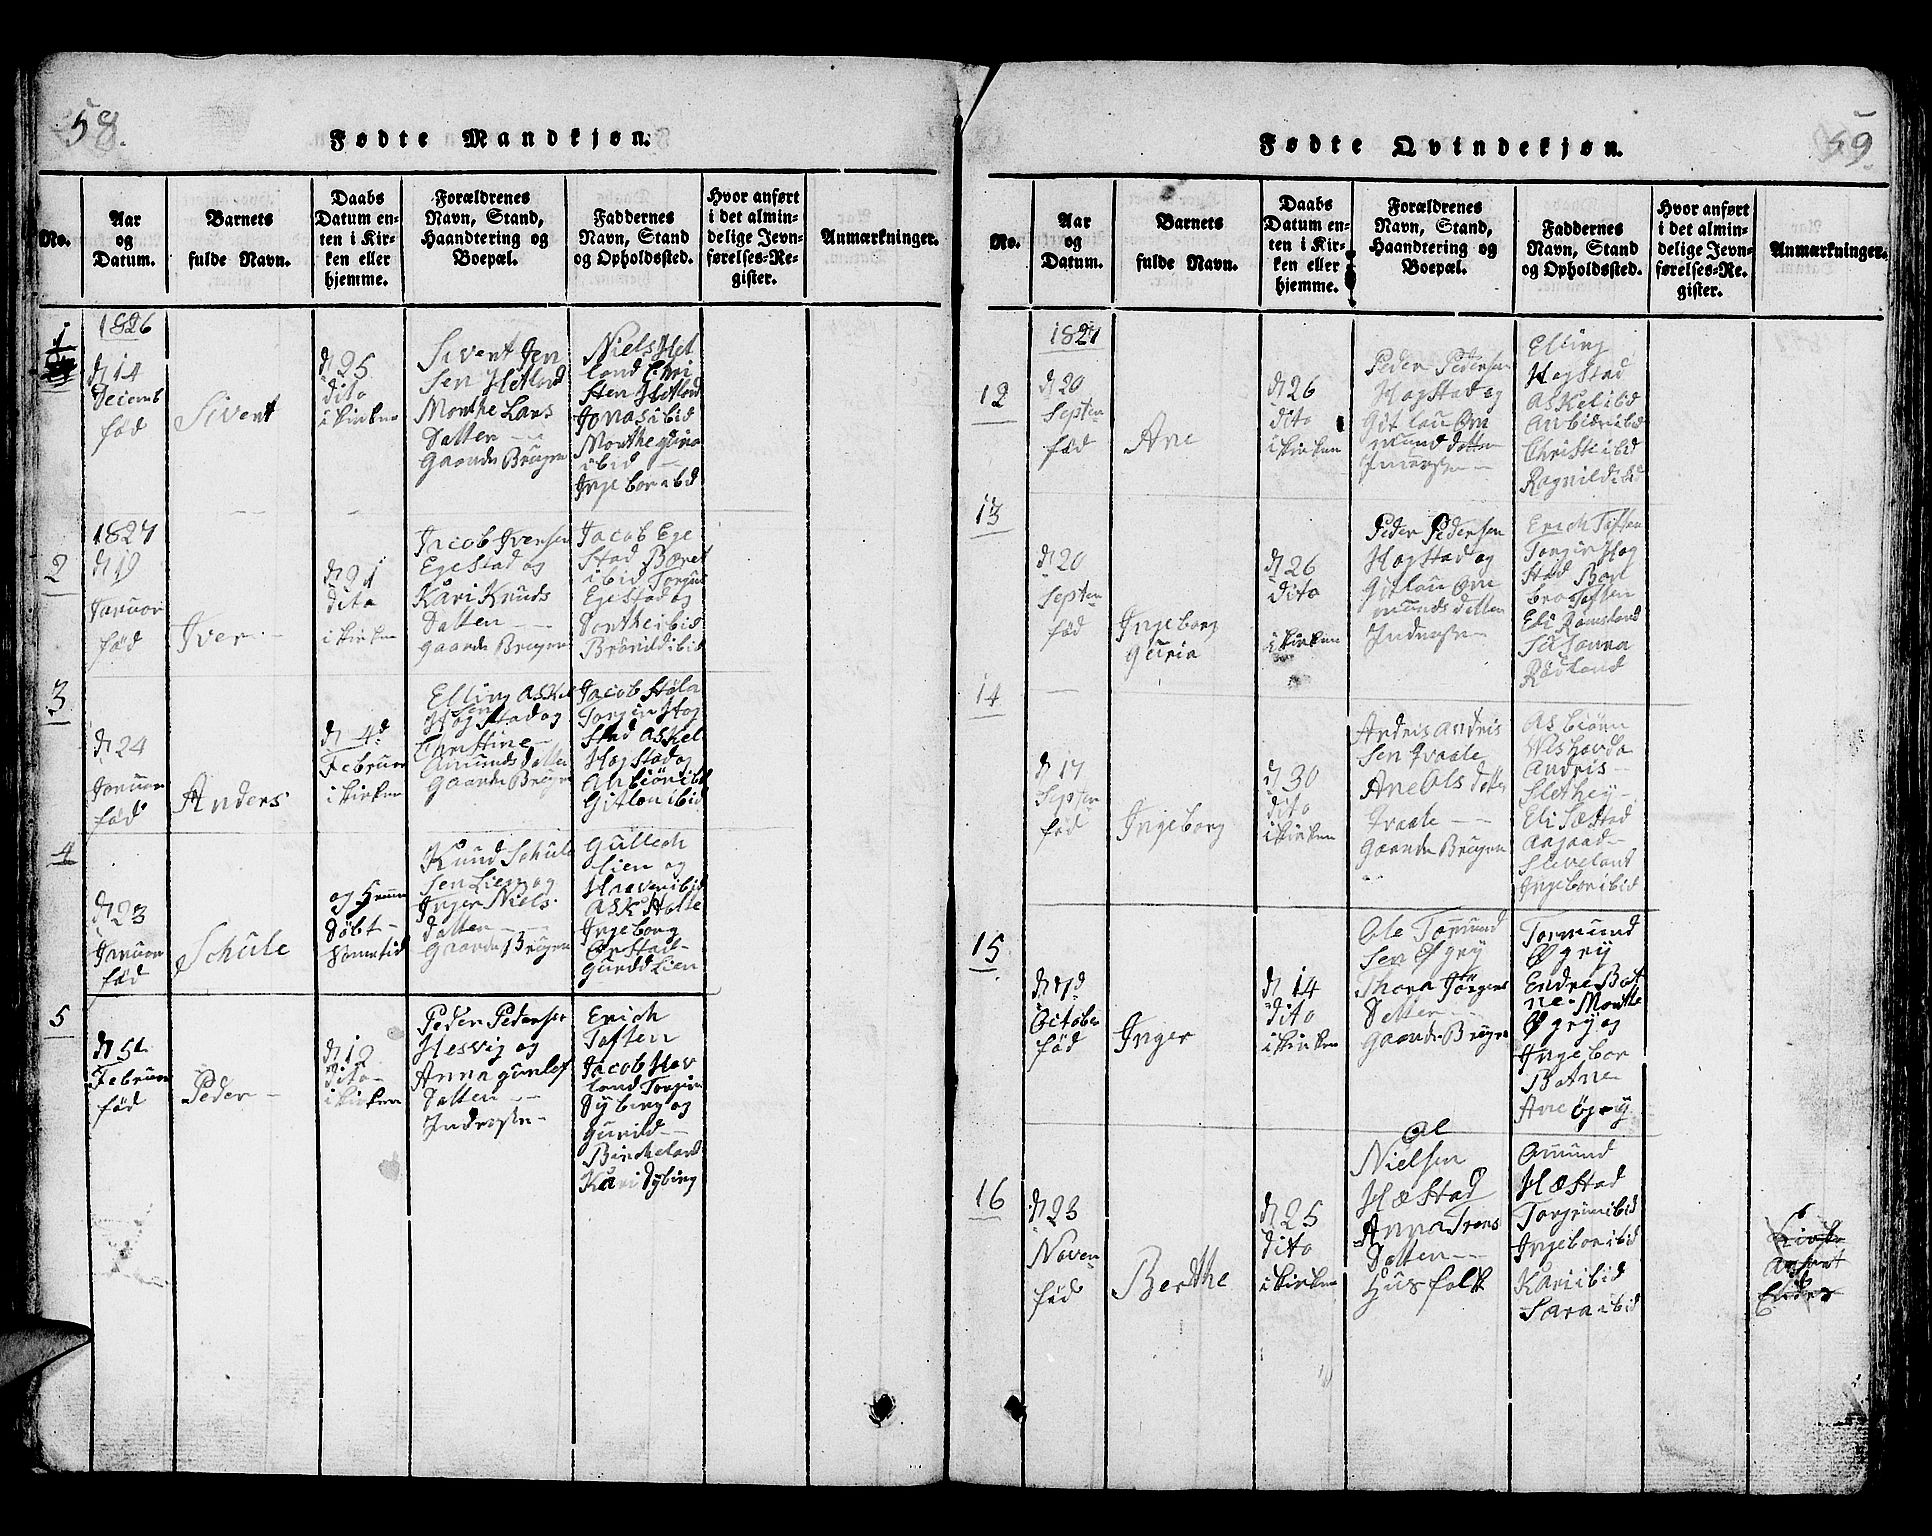 58.
Fødte Mandkjøn.
No.
Aar
og
Datum.
Barnets
fulde Navn.
Daabs
Datum en-
ten i Kir-
ken eller
hjemme.
Forældrenes
Navn, Stand,
Haandtering og
Boepæl.
Faddernes
Navn, Stand
og Opholdssted.
Hvor anført
i det almin-
delige Jevn-
førelses-Re-
gister.
Anmærkninger.
1
1826
d 14
født
Sivert
d 25
dito
i kirken
Sivert Jen
sen Hetland
Monthe Lars
Datter
Gaarde Brugen
Niels Het
land
sten Hetland
Jonas ibid
ibid
Ingebor ibid
2
1827
d 19
Januar
fød
Iver
d 21
dito
i kirken
Jacob Iversen
Egestad og
Kari Knuds
Datter
Gaarde Brugen
Jacob Ege
stad
ibid Torgius
Egestad og
Dorthe ibid
3
d 24
Januar
fød
Anders
d 4d
Februar
i kirken
Elling Askel
sen
Hogstad og
Christine
Amunds datter
Gaarde Brugen
Jacob
Torgir Hog
stad Askel
Hogstad og
Gitlou ibid
4
d 23
Januar
fød
Schule
og
Døbt
Knud Schule
sen Lien og
Inger Niels
datter
Gaarde Brugen
Lien og
ibid
Ingeborg
Ørstad
Lien
5
d 5t
Februar
fød
Peder
d 12
dito
i kirken
Peder Pedersen
Hesvig og
Anna Gunlef
Datter
Erich
Toften
Jacob Hav
land Torgir
Dybing og
Gunild
Bircheland
Kari Dybing
59
Fødte Qvindekjøn.
No.
Aar
og
Datum.
Barnets
fulde Navn.
Daabs
Datum en-
ten i Kir-
ken eller
hjemme.
Forældrenes
Navn, Stand,
Haandtering og
Boepæl.
Faddernes
Navn, Stand
og Opholdssted.
Hvor anført
i det almin-
delige Jevn-
førelses-Re-
gister.
Anmærkninger.
1827
12
d 20
Septen
fød
Ane
d 26
dito
i kirken
Peder Pedersen
Hogstad og
Gitlou Om
mund datter
Elling
Hogstad
Askel ibid
ibid
Christi ibid
Ragnild ibid
13
d 20
Septen
fød
Ingeborg
Guria
d 26
dito
i kirken
Peder Pedersen
Hogstad og
Gitlou Om
munds datter
Erich Toften
Torgir Hog
stad
Toften
Eli Ramsland
Susanna
Rødland
14
d 17
Septen
fød
Ingeborg
d 30
dito
i kirken
Andris Andris
sen Qvaale
Ane Ols datter
Qvaale
Gaarde Brugen
Asbiørn
Andris
Slethey
Eli Sæstad
Aagaad
Sleveland
Ingebor ibid
15
d 7d
October
fød
Inger
d 14
dito
i kirken
Ole Tormund
sen Øgry
Thora Torgers
Datter
Gaarde Brugen
Tormund
Øgry
Endre Bot
ne Monthe
Øgry og
Ingebor
Botne
Ane Øgry
16
d 23
Noven
fød
Berthe
d 25
dito
i kirken
Ole
Nielsen
Hæstad
Anna Trons
Datter
Husfolk
Amund
Hæstad
Torgrim ibid
Ingebor ibid
Kari ibid
Sara ibid